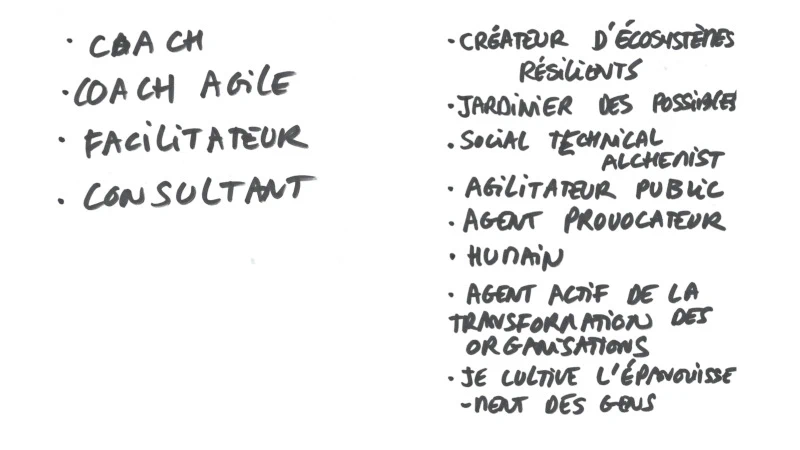 • COACH
• COACH AGILE
• FACILITATEUR
• CONSULTANT
• CRÉATEUR D'ÉCOSYSTÈMES
RÉSILIENTS
• JARDINIER DES POSSIBLES
• SOCIAL TECHNICAL
ALCHEMIST
• AGILITATEUR PUBLIC
• AGENT PROVOCATEUR
• HUMAIN
• AGENT ACTIF DE LA
TRANSFORMATION DES
ORGANISATIONS
• JE CULTIVE L'ÉPANOUISSE
-MENT DES GENS